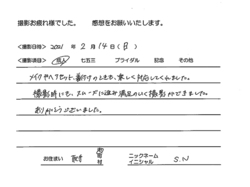 撮影お疲れ様でした。 感想をお願いいたします。
<撮影日時> 2021 年 2 月 14 日 ( 日 )
<撮影項目> 成人 七五三 ブライダル 記念 その他
メイクやヘアセット、着付けのときも、楽しく対応してくれました。
撮影時にも、スムーズに進み満足のいく撮影ができました。
ありがとうございました。
お住まい 都道府県 ニックネーム イニシャル S.N